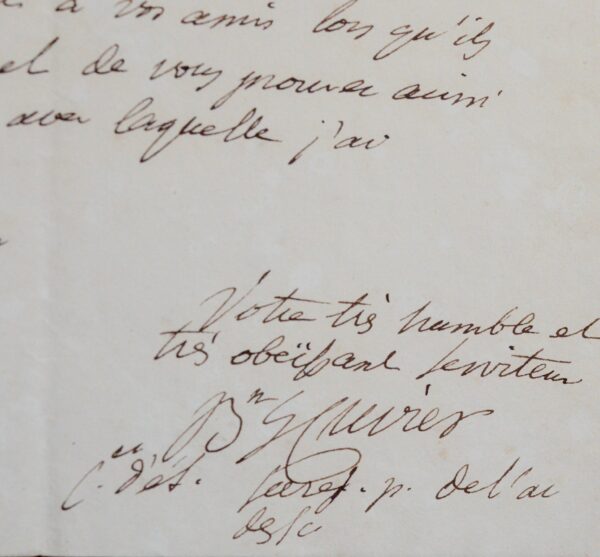 à vos amis lors qu'ils
et de vous prouver ainsi
avec laquelle j'ai
Votre très humble et
très obeïssant serviteur
Bn G Cuvier
C.er d'ét. Secret. p. de l'ac
des sc